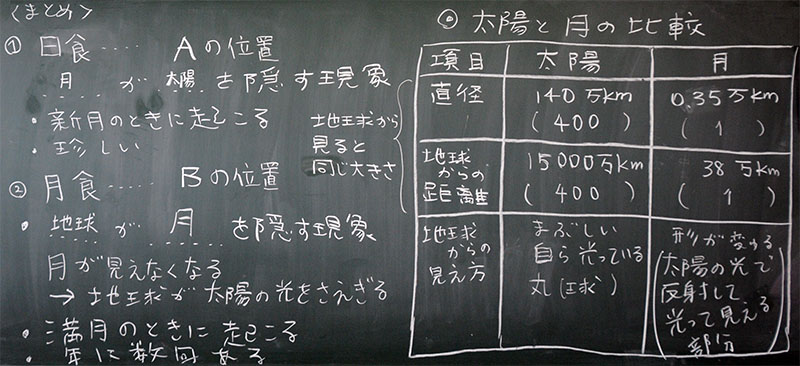 <まとめ>
① 日食‥‥ Aの位置
月 が 太陽 を隠す現象
・新月のときに起こる
・珍しい
地球から
見ると
同じ大きさ
② 月食‥‥ Bの位置
・地球 が 月 を隠す現象
月が見えなくなる
→ 地球が太陽の光をさえぎる
・満月のときに起こる
・年に数回ある
◎ 太陽と月の比較
項目 太陽 月
直径 140万km 0.35万km
(400) (1)
地球からの距離 15000万km 38万km
(400) (1)
地球からの見え方
まぶしい
自ら光っている
丸(球)
形が変わる
(太陽の光で
反射して
光って見える
部分)